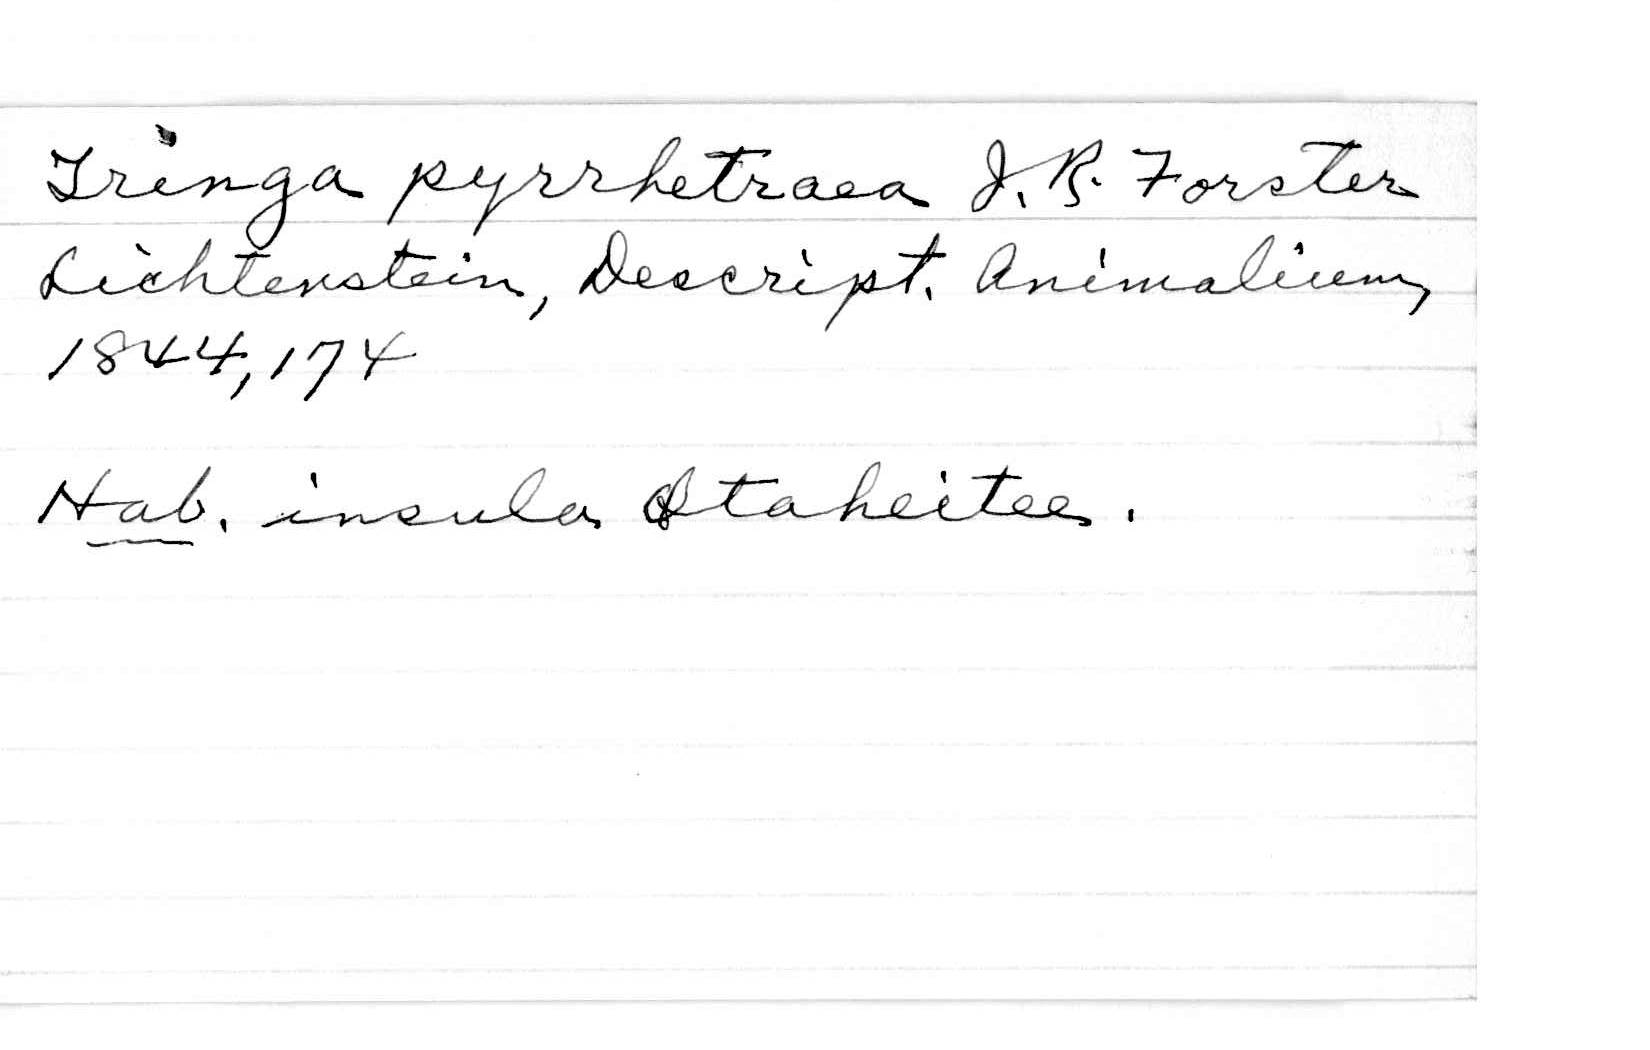 Tringa pyrrhetraea J. R. Forster
Lichtenstein, Descript. Animalium,
1844, 174
Hab. insula Otaheitee.